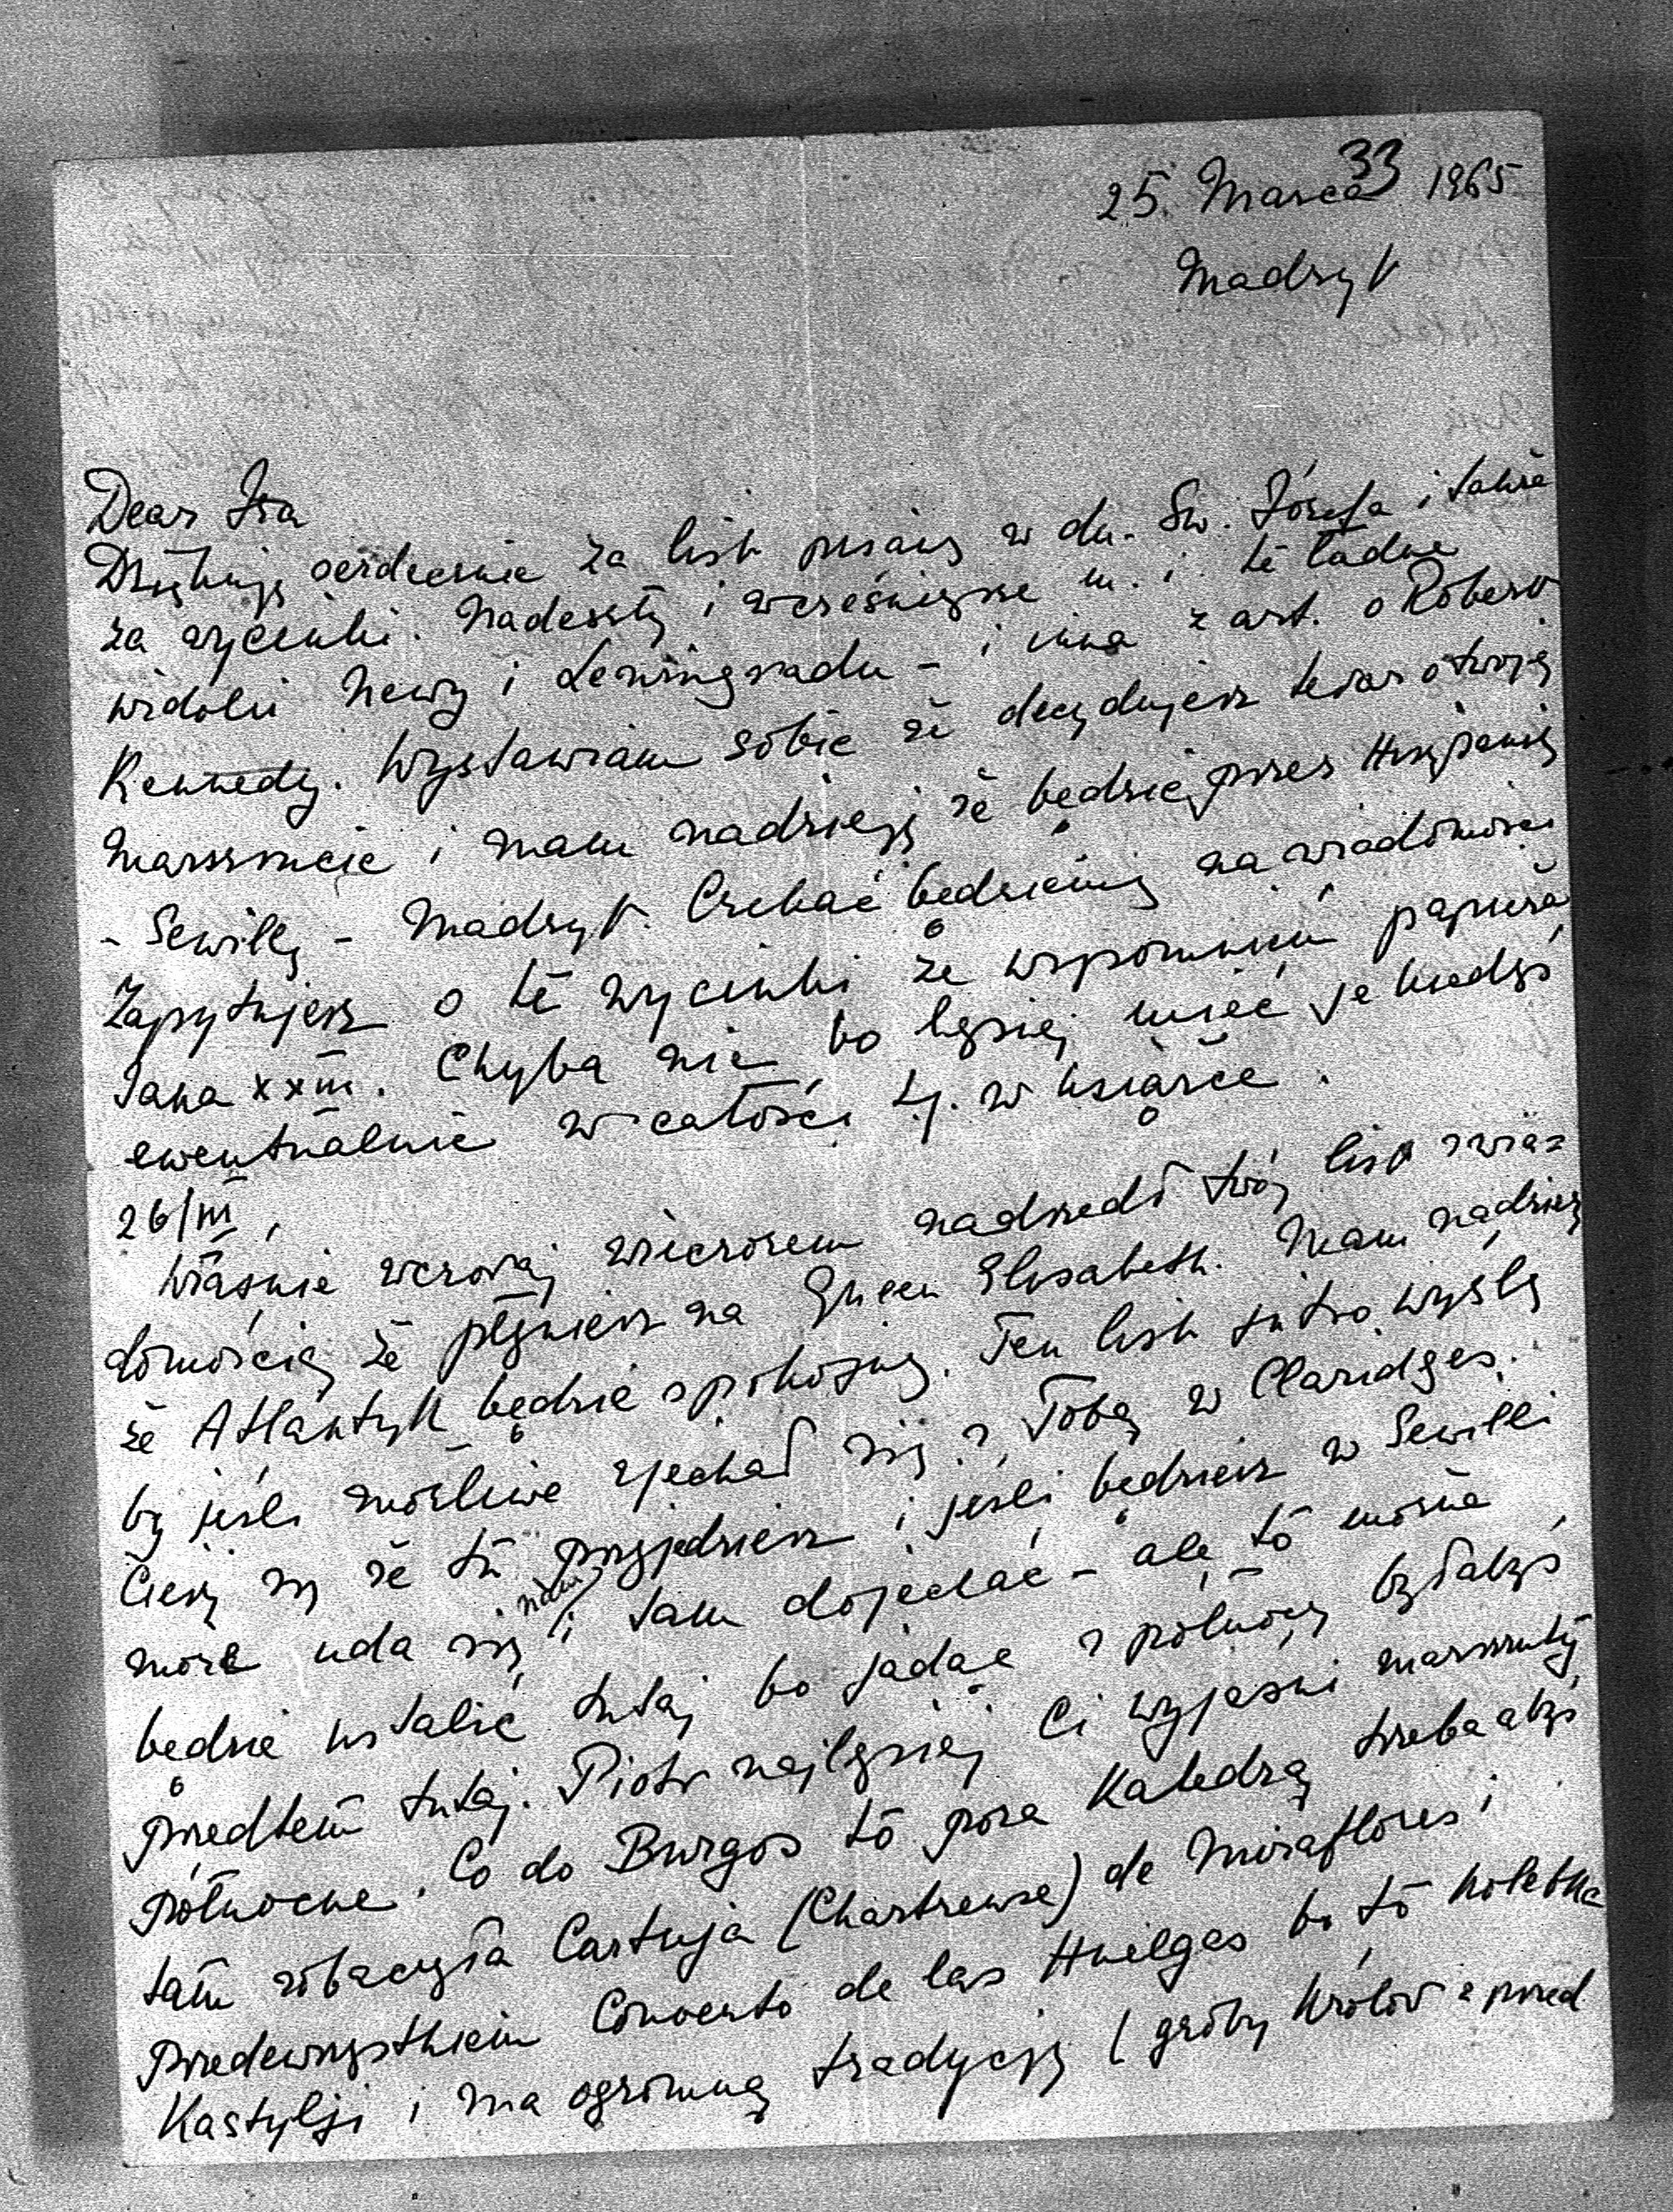 33
25. Marca 1965
Madryt
Dear Isa
Dziękuję serdecznie za list pisany w dn. Św. Józefa i także
za wycinki. Nadeszły i wcześniejsze m. i. te ładne
widoki Newy i Leningradu - i inna z art. o Robert
Kennedy. Wystawiam sobie że decydujesz teraz o twojej
marszrucie i mam nadzieję że będzie przez Hiszpanię
- Sewillę - Madryt. Czekać będziemy na wiadomości
Zapytujesz o te wycinki ze wspomnień papieża
Jana XXIII. Chyba nie, bo lepiej mieć je kiedyś
ewentualnie w całości tj. w książce.
26/III.
Właśnie wczoraj wieczorem nadszedł twój list z wia=
domością że płyniesz na Queen Elisabeth. Mam nadzieję
że Atlantyk będzie spokojny. Ten list jutro wyślę
by jeśli możliwe zjechał się z Tobą w Claridges.
Cieszę się że tu przyjedziesz i jeśli będziesz w Sewilli
może uda się nam i tam dojechać - ale to można
będzie ustalić tutaj bo jadąc z północy byłabyś
przedtem tutaj. Piotr najlepiej Ci wyjaśni marszruty
północne. Co do Burgos to poza Katedrą trzeba abyś
tam zobaczyła Cartuja (Chartreuse) de Miraflores i
przedewszystkiem Convento de las Huelgas bo to kolebka
Kastylji i ma ogromną tradycję (groby Królów z przed